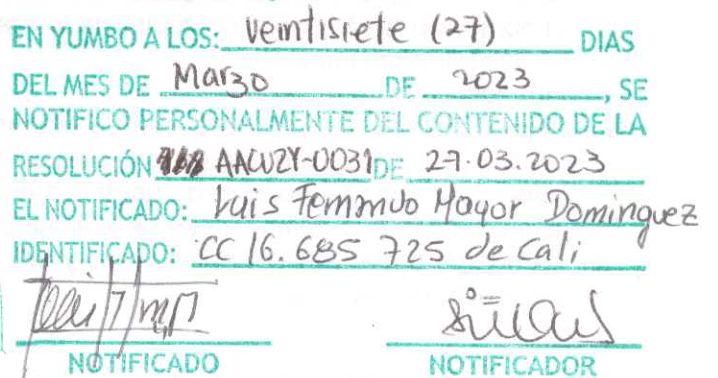 EN YUMBO A LOS: Veintisiete (27) DIAS
DEL MES DE Marzo DE 2023, SE
NOTIFICO PERSONALMENTE DEL CONTENIDO DE LA
RESOLUCIÓN AACUZY-0031 DE 27.03.2023
EL NOTIFICADO: Luis Fernando Mayor Dominguez
IDENTIFICADO: CC 16.685 725 de Cali
NOTIFICADO NOTIFICADOR